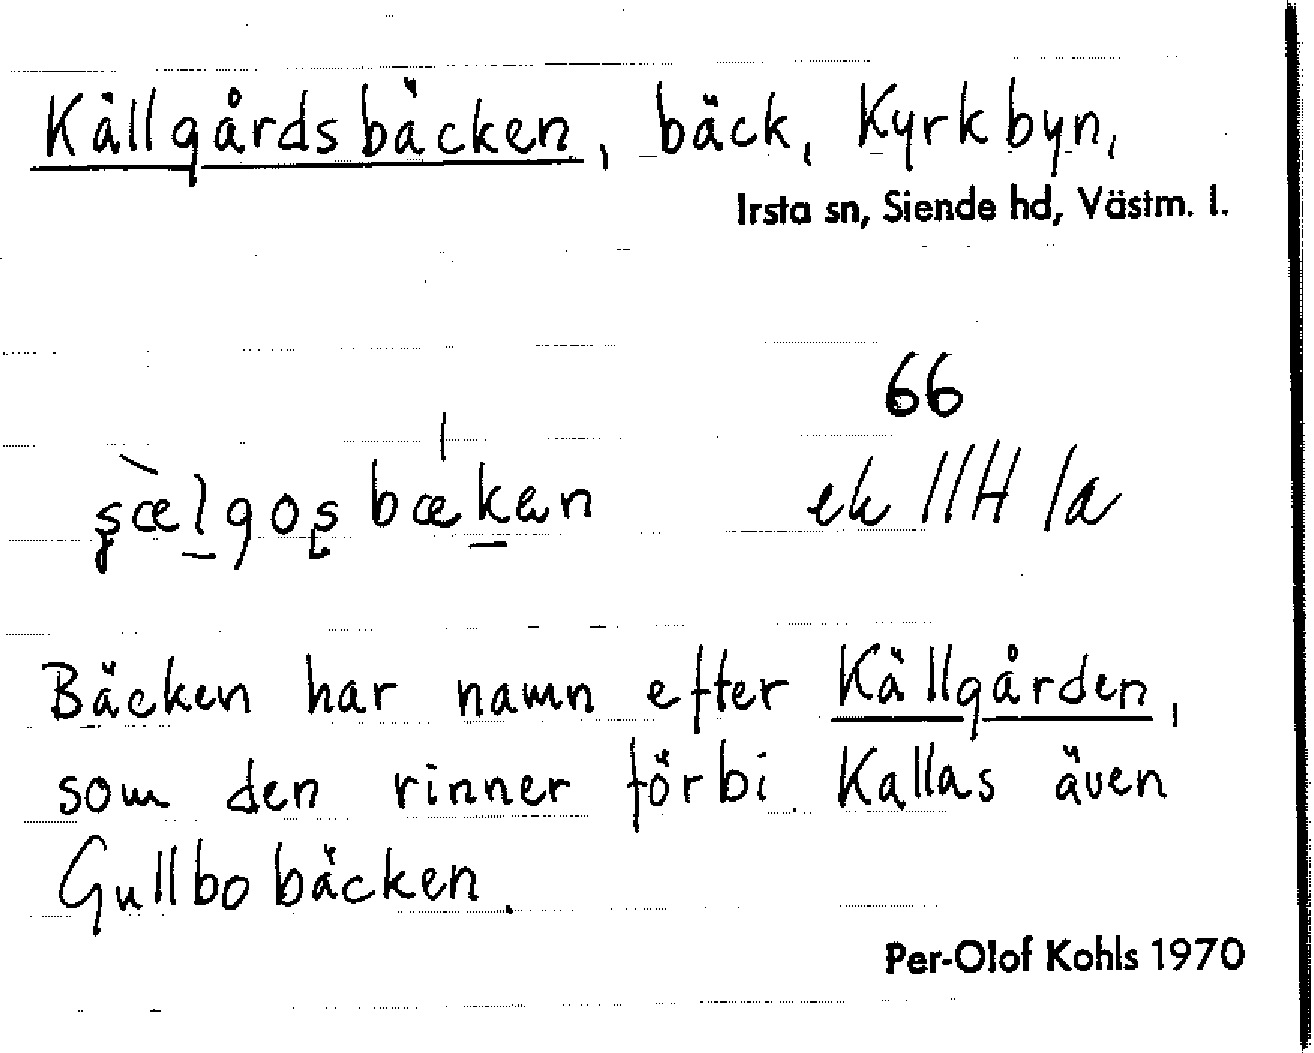 Källgårdsbäcken, bäck, Kyrkbyn,
Irsta sn, Siende hd, Västm. l.
66
ek 11H 1a
Bäcken har namn efter Källgården,
som den rinner förbi. Kallas även
Gullbobäcken.
Per-Olof Kohls 1970